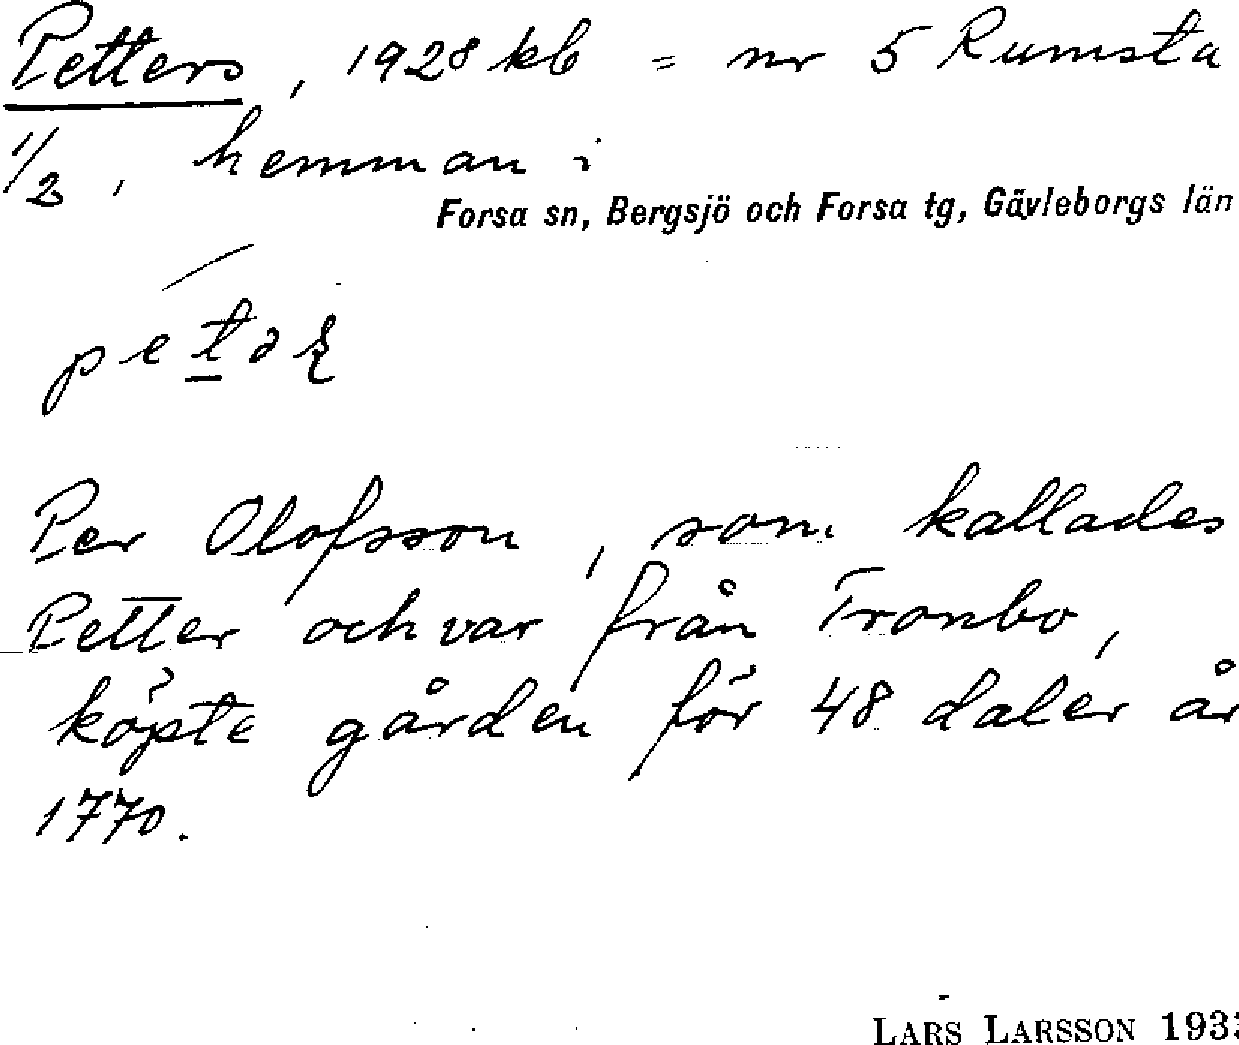 Petters, 1928 kb = nr 5 Rumsta
1/2, hemman i
Forsa sn, Bergsjö och Forsa tg, Gävleborgs län
Per Olofsson, som kallades
Petter och var från Tronbo,
köpte gården för 48 daler år
1770.
LARS LARSSON 193